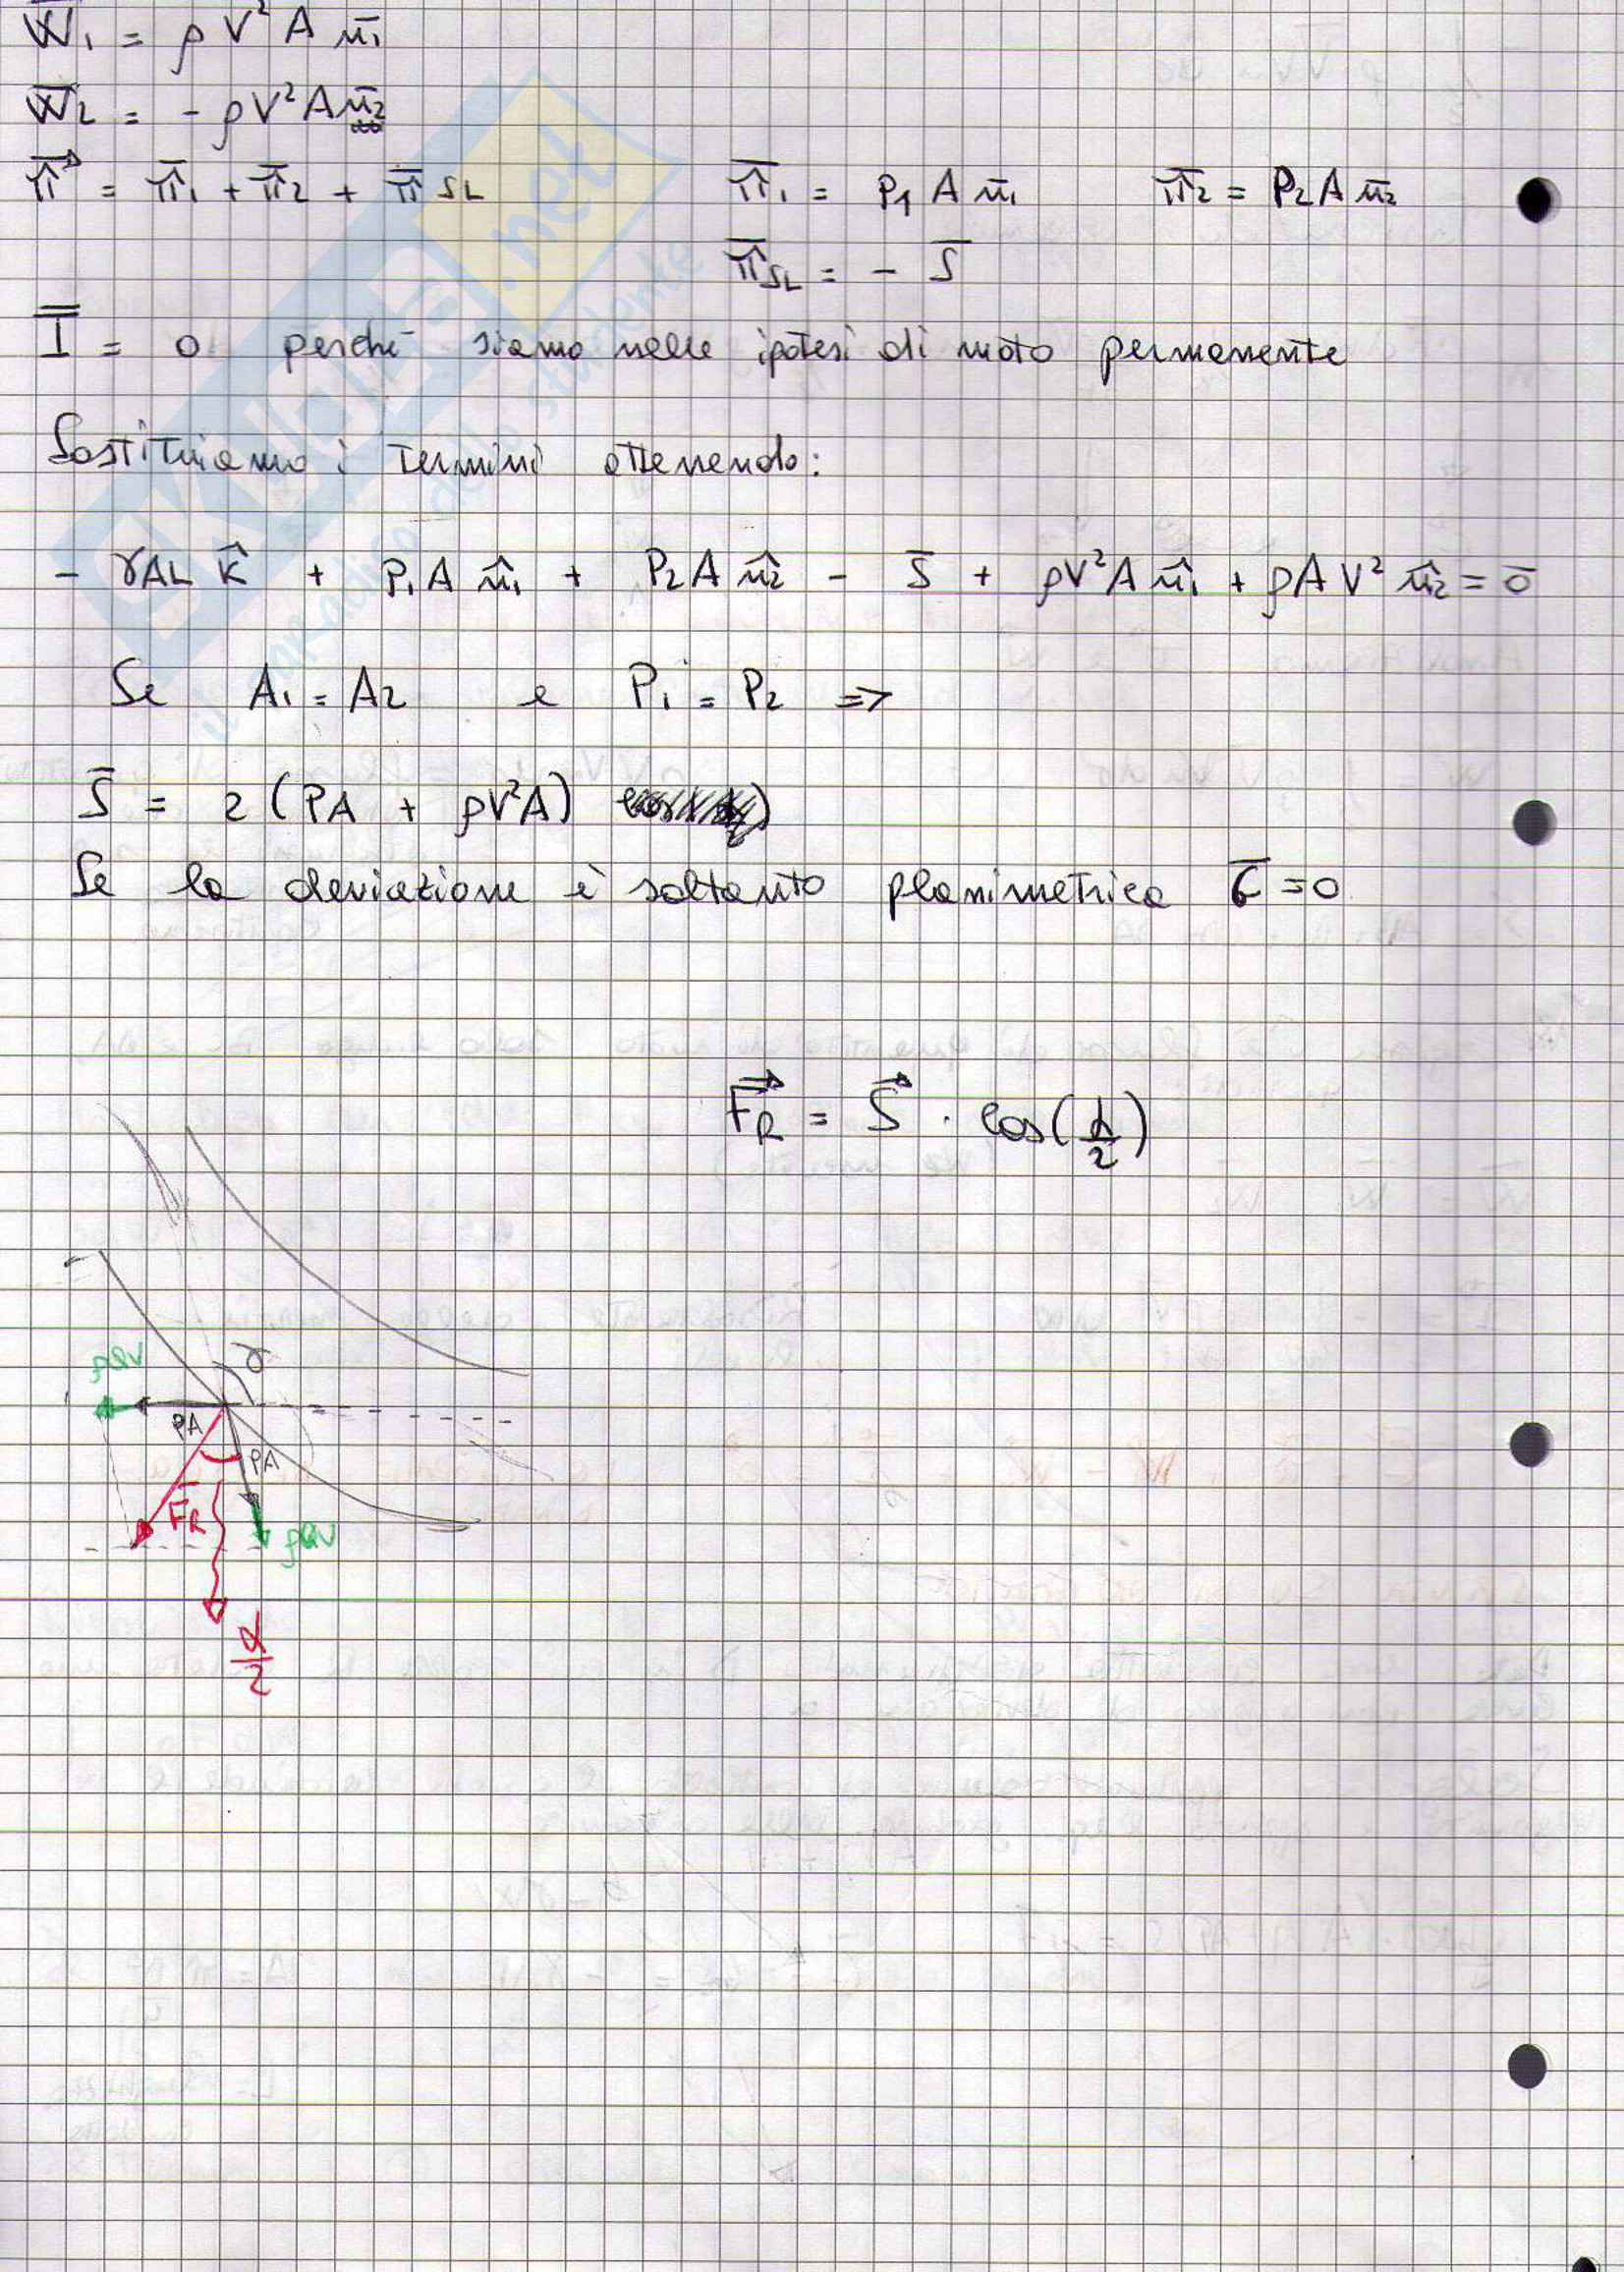 W̅₁ = ρV²A n̅₁
W̅₂ = - ρV²A n̅₂
π⃗ = π̅₁ + π̅₂ + π̅ SL π̅₁ = P₁ A n̅₁ π̅₂ = P₂ A n̅₂
π̅SL = - S̅
I̅ = 0 perché siamo nelle ipotesi di moto permanente
Sostituiamo i termini ottenendo:
- γAL k̂ + P₁A n̂₁ + P₂A n̂₂ - S̅ + ρV²A n̂₁ + ρAV² n̂₂ = 0̅
Se A₁ = A₂ e P₁ = P₂ =>
S̅ = 2 (PA + ρV²A)
Se la deviazione è soltanto planimetrica G̅ = 0
F⃗R = S⃗ · cos(α/2)
ρQV
γ
PA
PA
F̅R
ρQV
α/2
SKUOLA.net
il paradiso dello studente